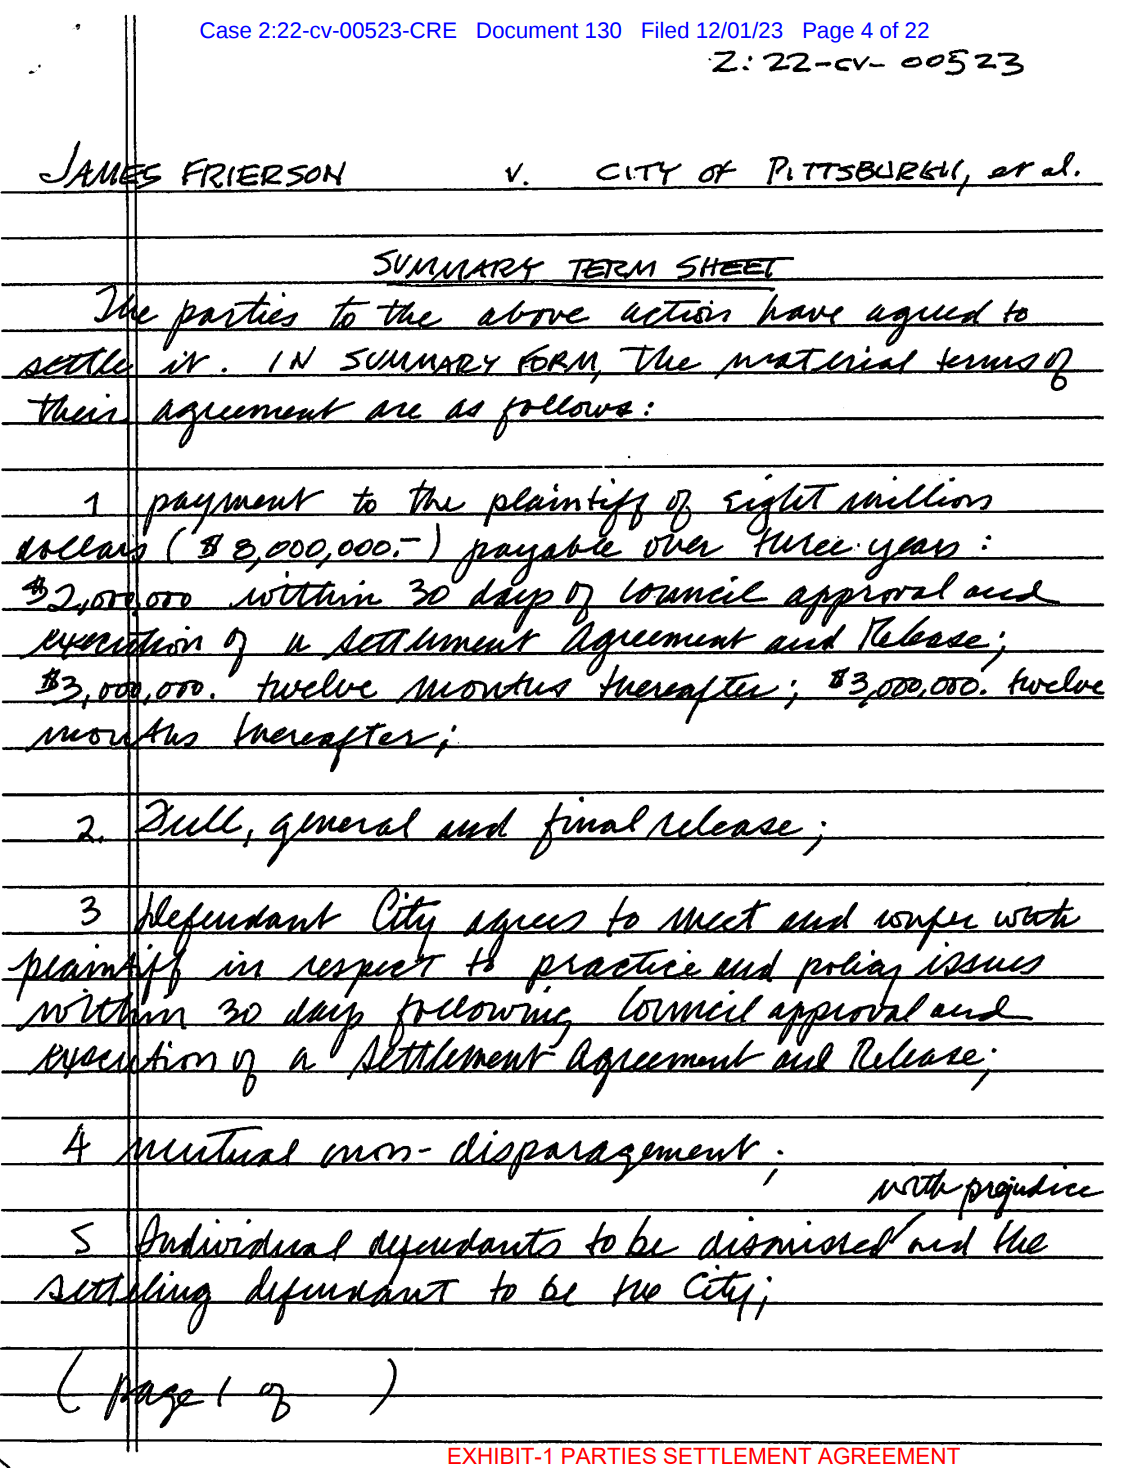 Case 2:22-cv-00523-CRE Document 130 Filed 12/01/23 Page 4 of 22
2:22-cv-00523
JAMES FRIERSON v. CITY OF PITTSBURGH, et al.
SUMMARY TERM SHEET
The parties to the above action have agreed to
settle it. IN SUMMARY FORM, The material terms of
their agreement are as follows:
1 payment to the plaintiff of Eight million
dollars ($8,000,000.-) payable over three years:
$2,000,000 within 30 days of Council approval and
execution of a Settlement Agreement and Release;
$3,000,000. twelve months thereafter; $3,000,000. twelve
months thereafter;
2. Full, general and final release;
3 Defendant City agrees to meet and confer with
plaintiff in respect to practice and policy issues
within 30 days following Council approval and
execution of a Settlement Agreement and Release;
4 mutual non-disparagement;
with prejudice
5 Individual defendants to be dismissed and the
settling defendant to be the City;
(page 1 of )
EXHIBIT-1 PARTIES SETTLEMENT AGREEMENT